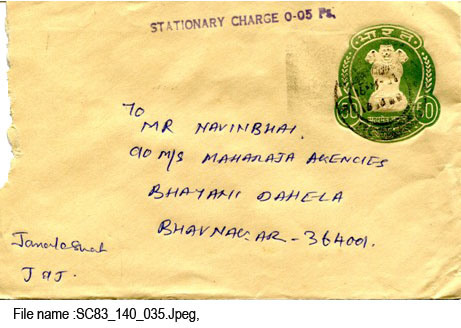 STATIONARY CHARGE 0-05 Ps.
भारत
60 60
To
MR NAVINBHAI.
c/o M/S MAHARAJA AGENCIES
BHAYANI DAHELA
BHAVNAGAR - 364001.
File name :SC83_140_035.Jpeg,